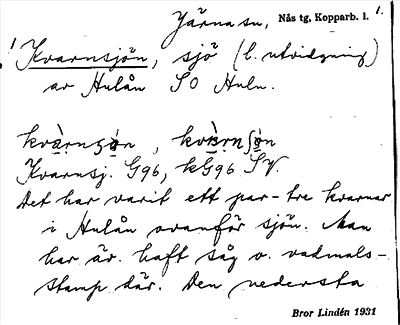 Järna sn, Nås tg, Kopparb. l. 1.
1 Kvarnsjön, sjö (l. utvidgning)
av Hulån SO Huln.
kvàrnsjön, kvàrnʃön
Kvarnsj. G96, kG96 SV.
Det har varit ett par-tre kvarnar
i Hulån ovanför sjön. Man
har äv. haft såg o. vadmals-
stamp där. Den nedersta
Bror Lindén 1931